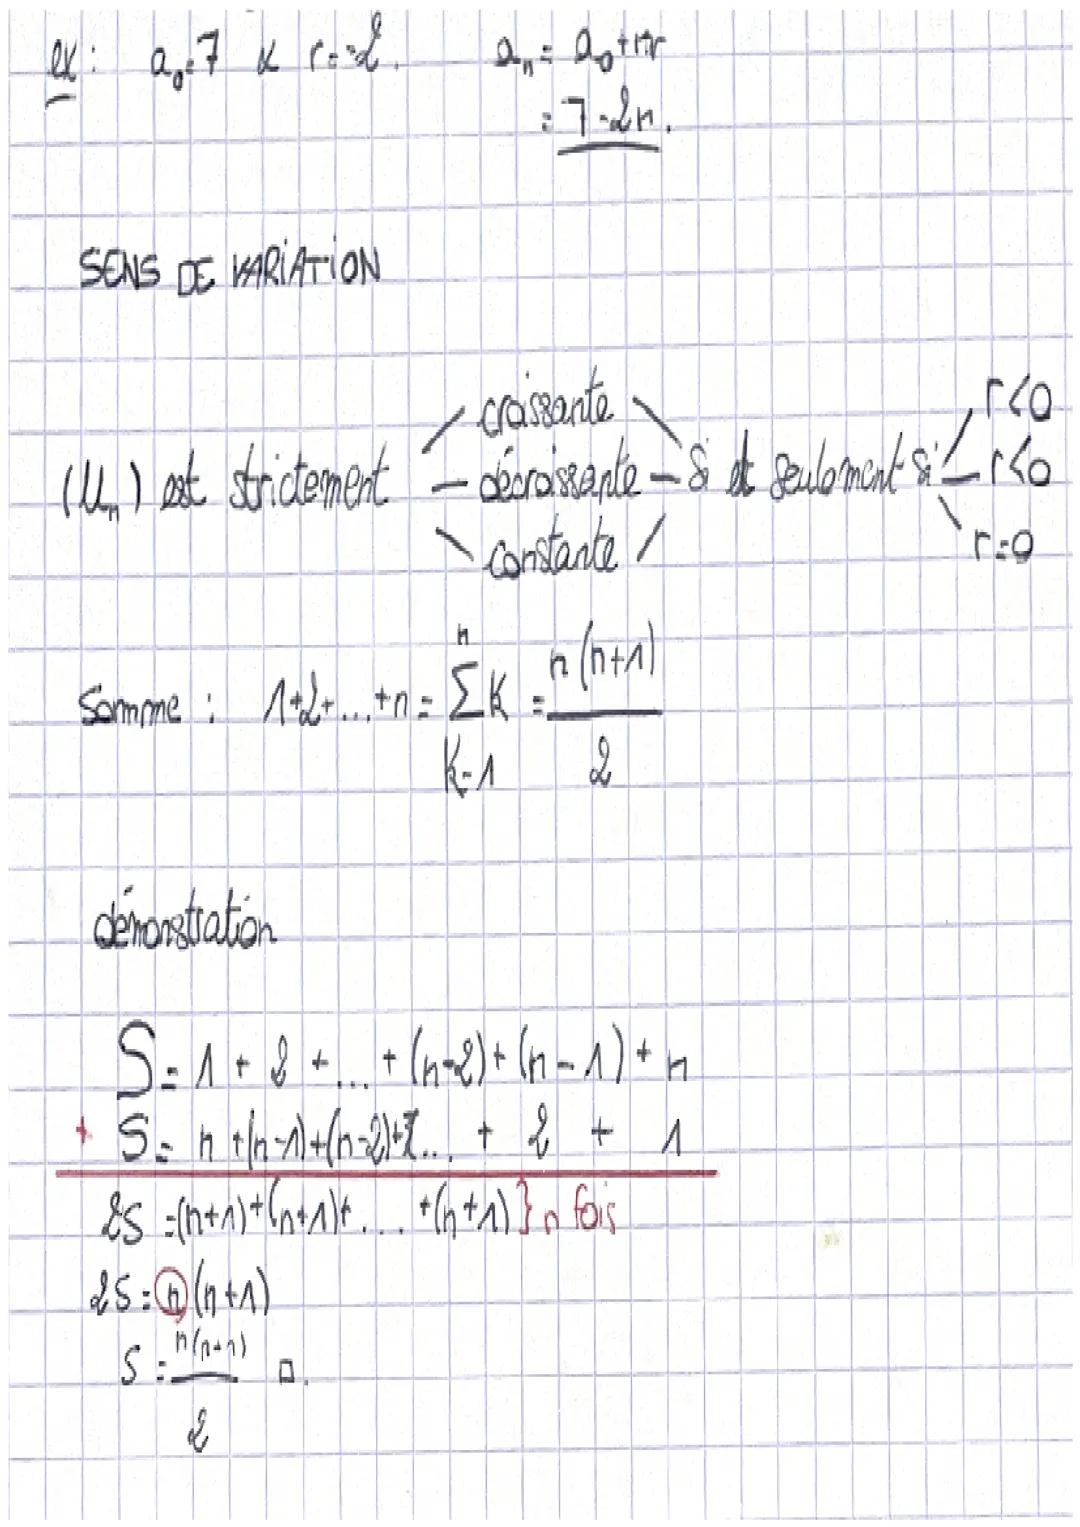 ex : a₀=7 & r=-2. aₙ = a₀+nr
= 7-2n.
SENS DE VARIATION
croissante r<0
(Uₙ) est strictement - décroissante - Si et seulement si - r<0
constante r=0
Somme : 1+2+...+n = ∑ₖ₌₁ⁿ K = n(n+1)/2
démonstration
S = 1 + 2 + ... + (n-2) + (n-1) + n
+ S = n + (n-1) + (n-2) + ... + 2 + 1
2S = (n+1) + (n+1) + .... + (n+1) } n fois
2S = n(n+1)
S = n(n+1)/2 □.